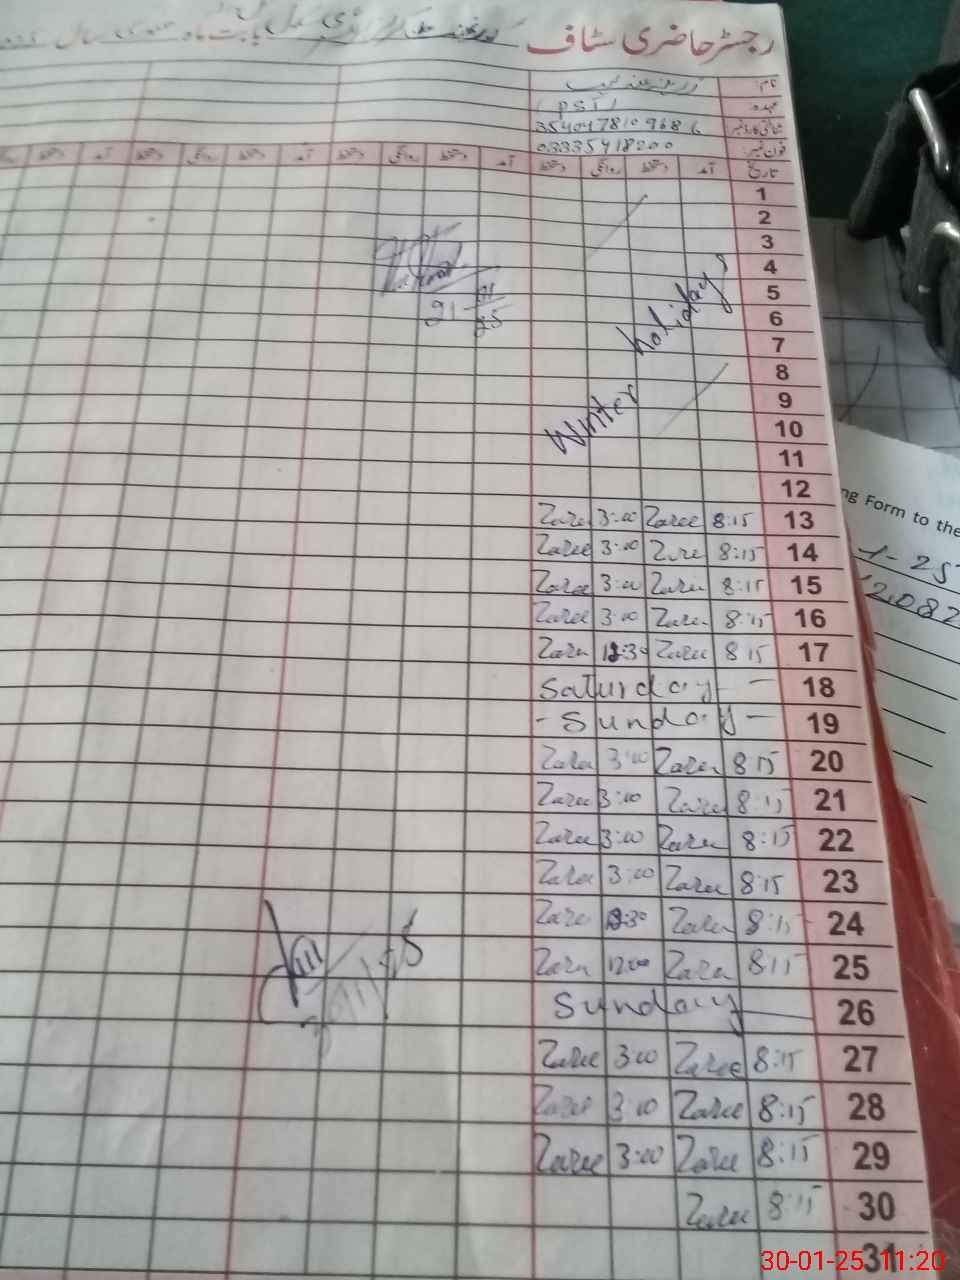 رجسٹر حاضری سٹاف بابت ماہ جنوری سال
نام:
عہدہ: (PST)
شناختی کارڈ نمبر 3540478109686
فون نمبر: 03335418200
تاریخ آمد دستخط روانگی دستخط آمد دستخط روانگی دستخط آمد دستخط روانگی
1
2
3
4
5
6
7
8
9
10
11
12
Winter holidays
21-01
25
13 8:15 Zaree 3:00 Zaree
14 8:15 Zaree 3:00 Zaree
15 8:15 Zaree 3:00 Zaree
16 8:15 Zaree 3:00 Zaree
17 8 15 Zaree 12:30 Zaree
18 Saturday -
19 - Sunday -
20 8:15 Zaree 3:00 Zaree
21 8:15 Zaree 3:00 Zaree
22 8:15 Zaree 3:00 Zaree
23 8:15 Zaree 3:00 Zaree
24 8:15 Zaree 12:30 Zaree
25 8:15 Zaree 12:00 Zaree
26 Sunday
27 8:15 Zaree 3:00 Zaree
28 8:15 Zaree 3:00 Zaree
29 8:15 Zaree 3:00 Zaree
30 8:15 Zaree
31
30/1/25
ng Form to the
1-25
2082
30-01-25 11:20